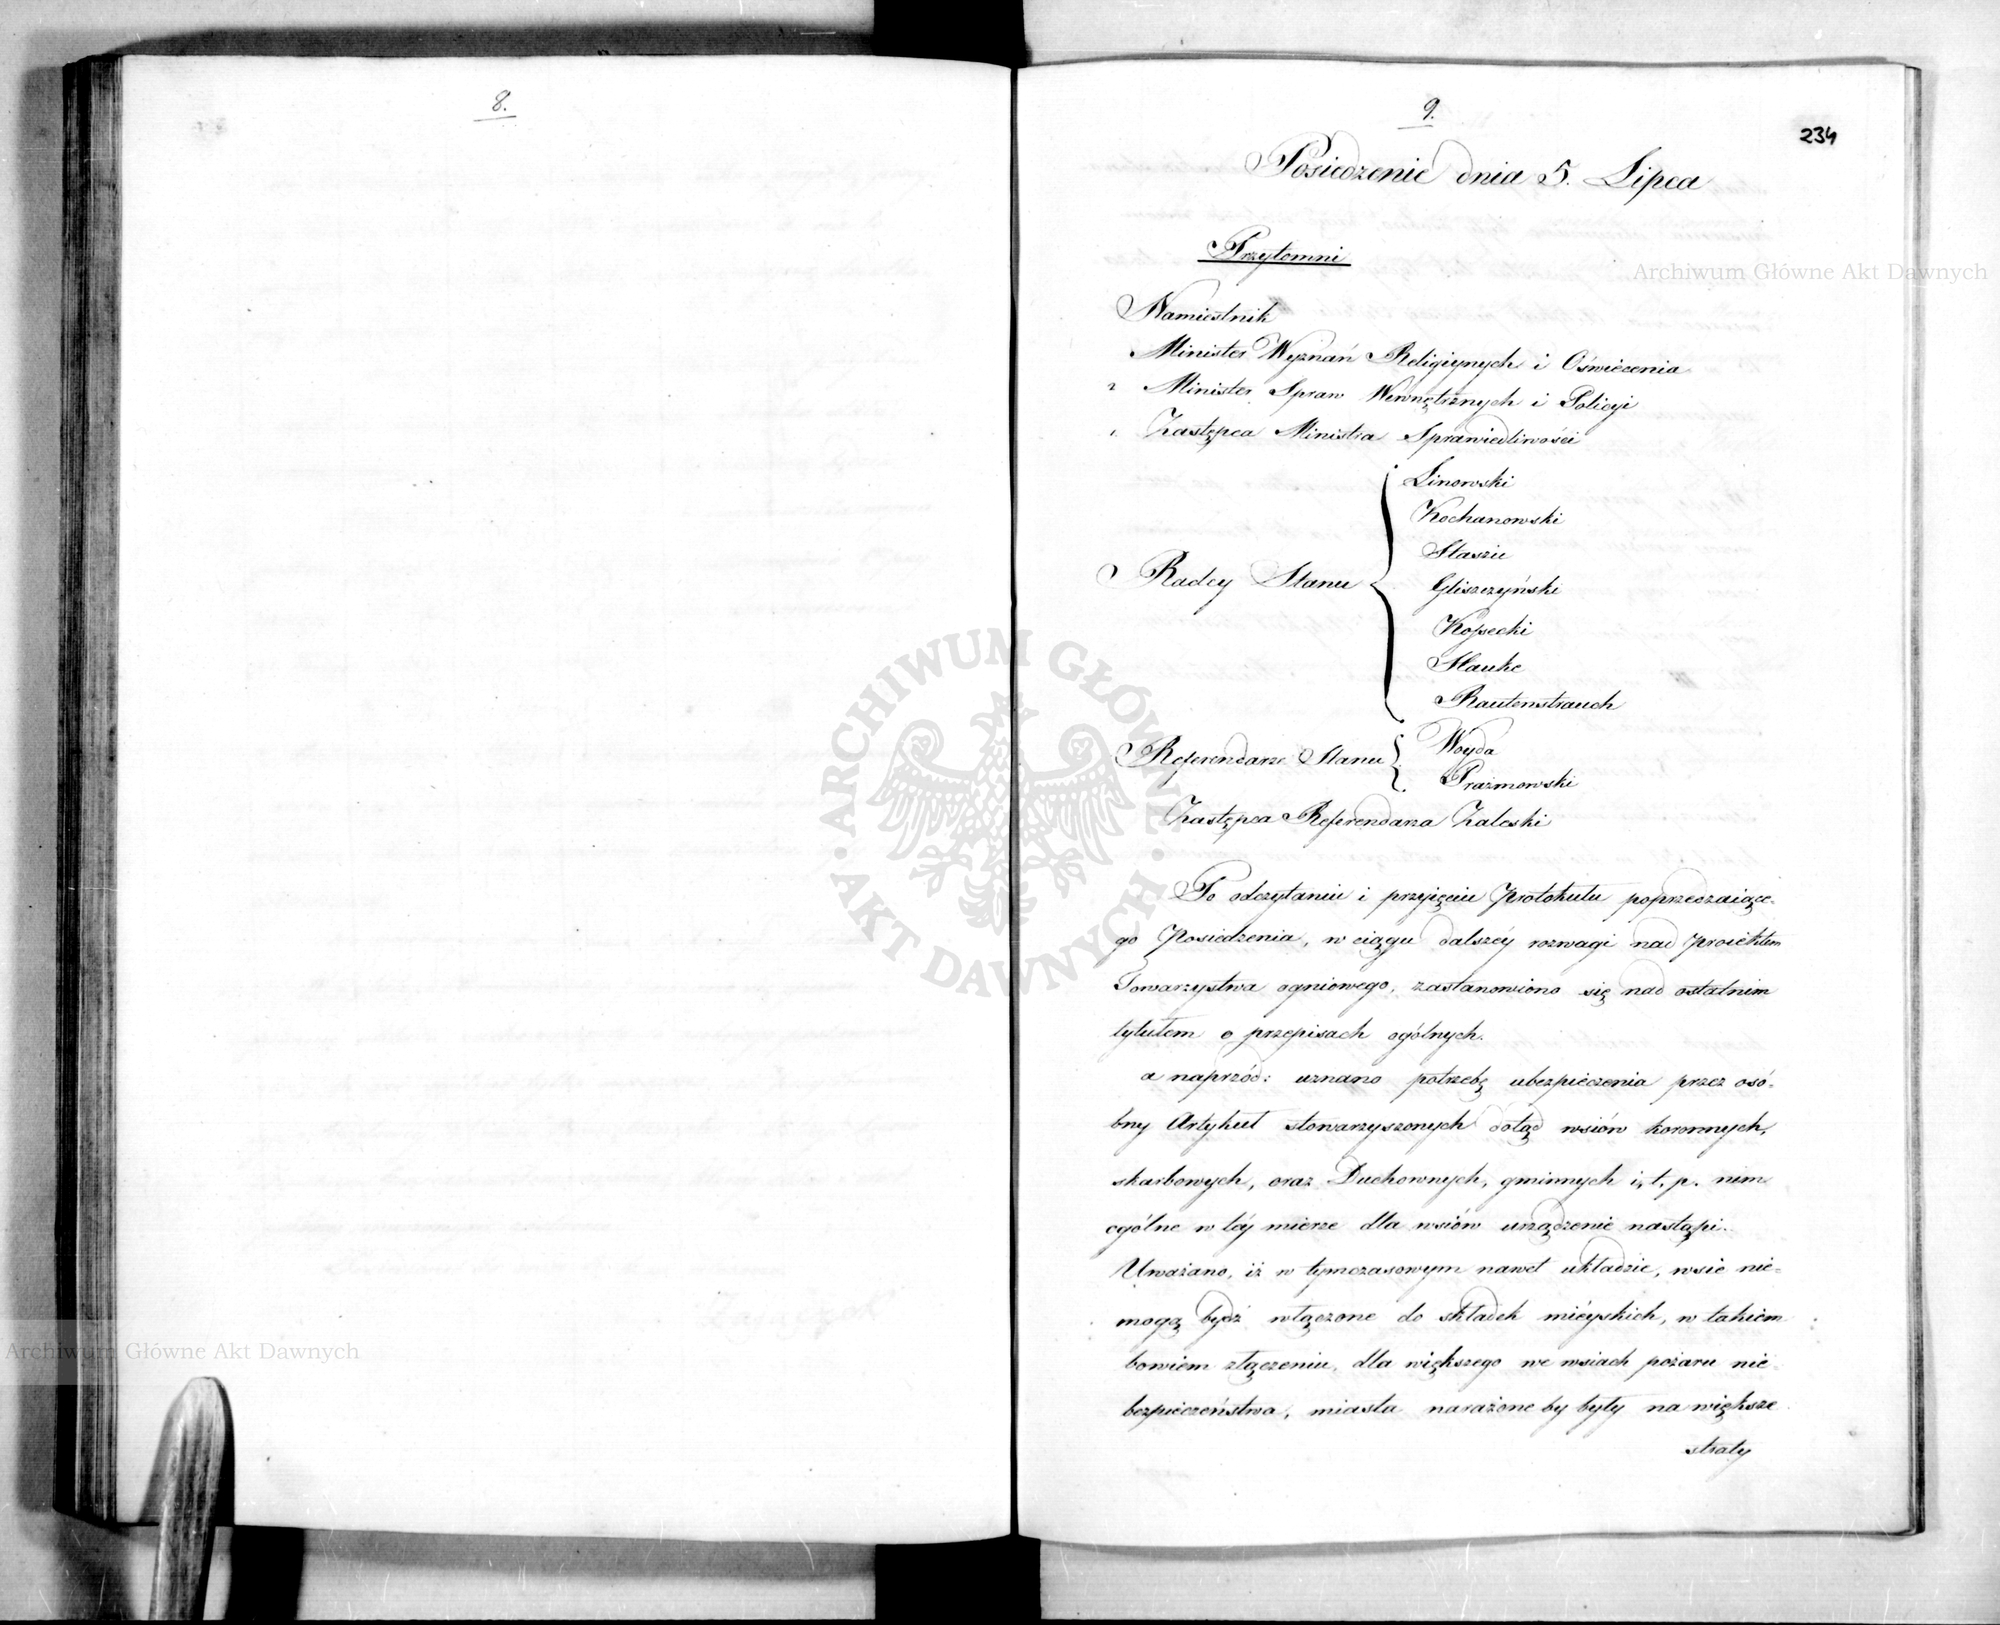 8.
9.
234
Posiedzenie dnia 5. Lipca
Przytomni
Namiestnik
Minister Wyznań Religiynych i Oświecenia
2 Minister Spraw Wewnętrznych i Policyi
1. Zastępca Ministra Sprawiedliwości
Radcy Stanu
Linowski
Kochanowski
Staszic
Gliszczyński
Kopecki
Hauke
Rautenstrauch
Referendarze Stanu
Woyda
Prażmowski
Zastępca Referendarza Zaleski
Po odczytaniu i przyięciu Protokułu poprzedzaiące-
go Posiedzenia, w ciągu dalszéy rozwagi nad Proiektem
Towarzystwa ogniowego, zastanowiono się nad ostatnim
tytułem o przepisach ogólnych.
a naprzód: uznano potrzebę ubezpieczenia przez osó-
bny Artykuł stowarzyszonych dotąd wsiów koronnych,
skarbowych, oraz Duchownych, gminnych i, t, p. nim
ogólne w téy mierze dla wsiów urządzenie nastąpi.
Uważano, iż w tymczasowym nawet układzie, wsie nie-
mogą bydź włączone do składek mieyskich, w takiem
bowiem złączeniu, dla większego we wsiach pożaru nie-
bezpieczeństwa, miasta narażone by były na większe
straty
Archiwum Główne Akt Dawnych
Archiwum Główne Akt Dawnych
ARCHIWUM GŁÓWNE · AKT DAWNYCH ·